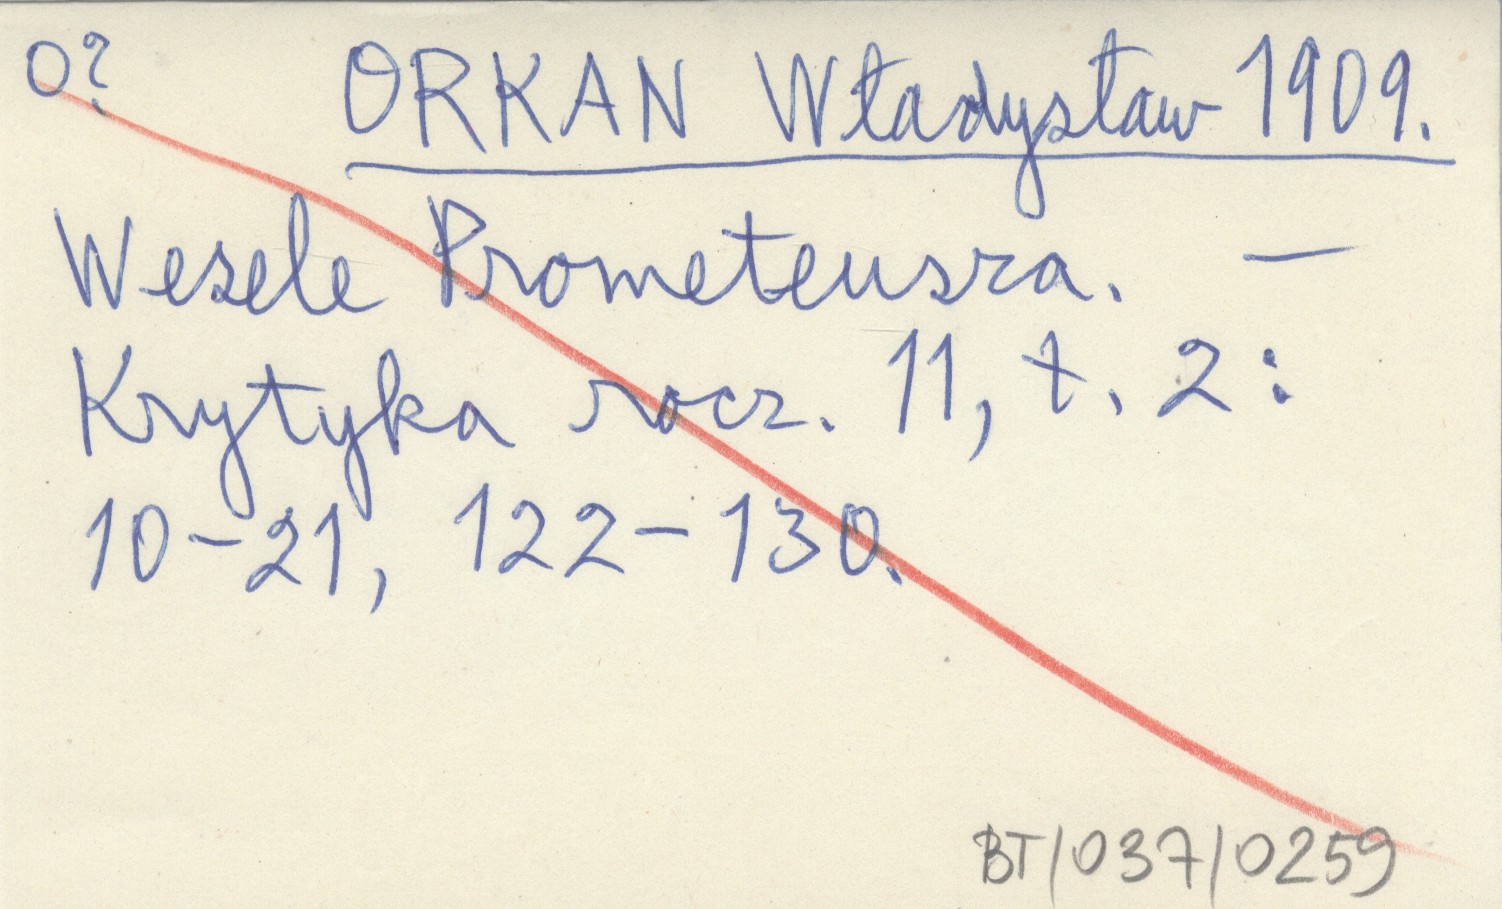 O? ORKAN Władysław 1909.
Wesele Prometeusza. —
Krytyka rocz. 11, t. 2:
10-21, 122-130.
BT/037/0259